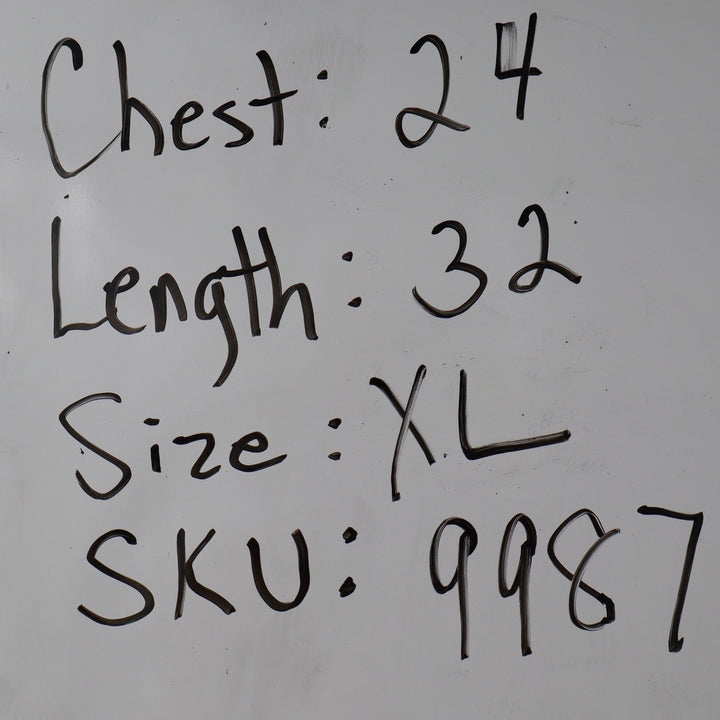 Chest: 24
Length: 32
Size: XL
SKU: 9987